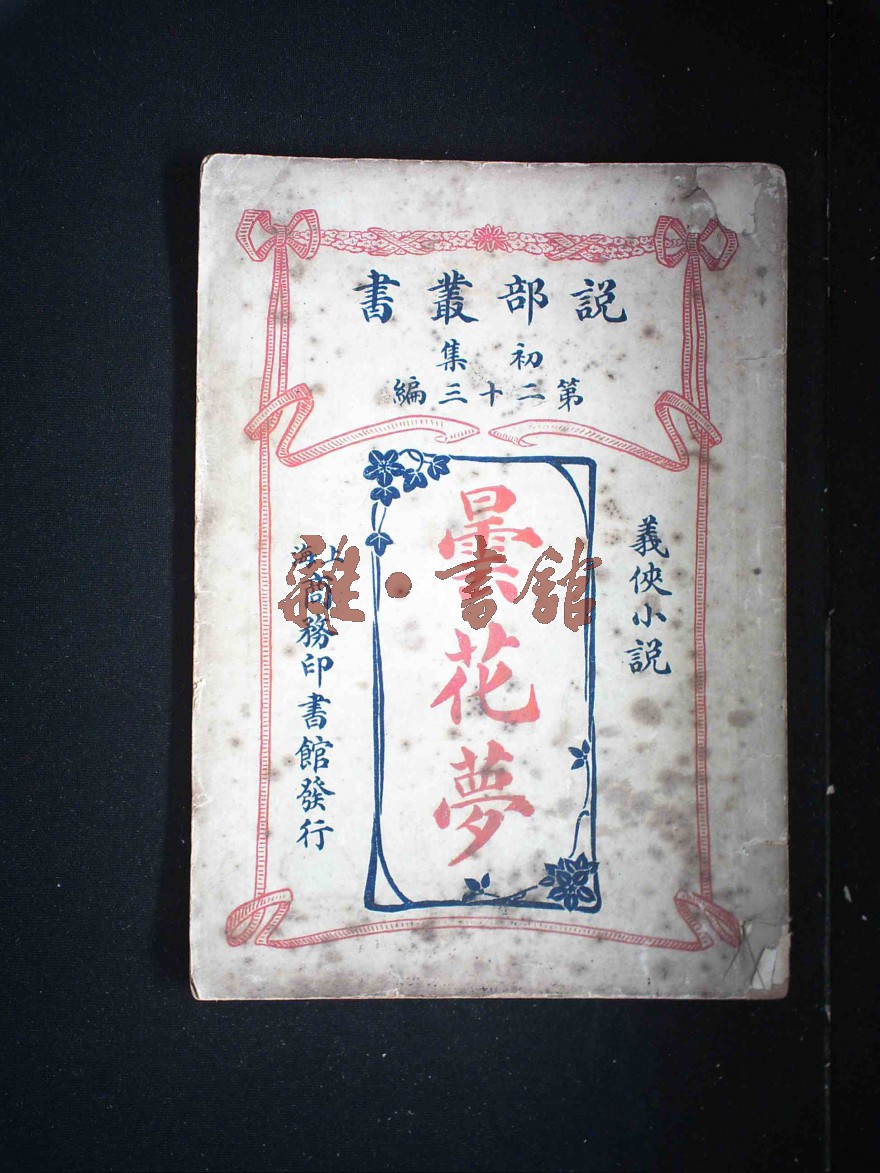 説部叢書
初集
第二十三編
義俠小説
曇花夢
上海商務印書館發行
雜·書館